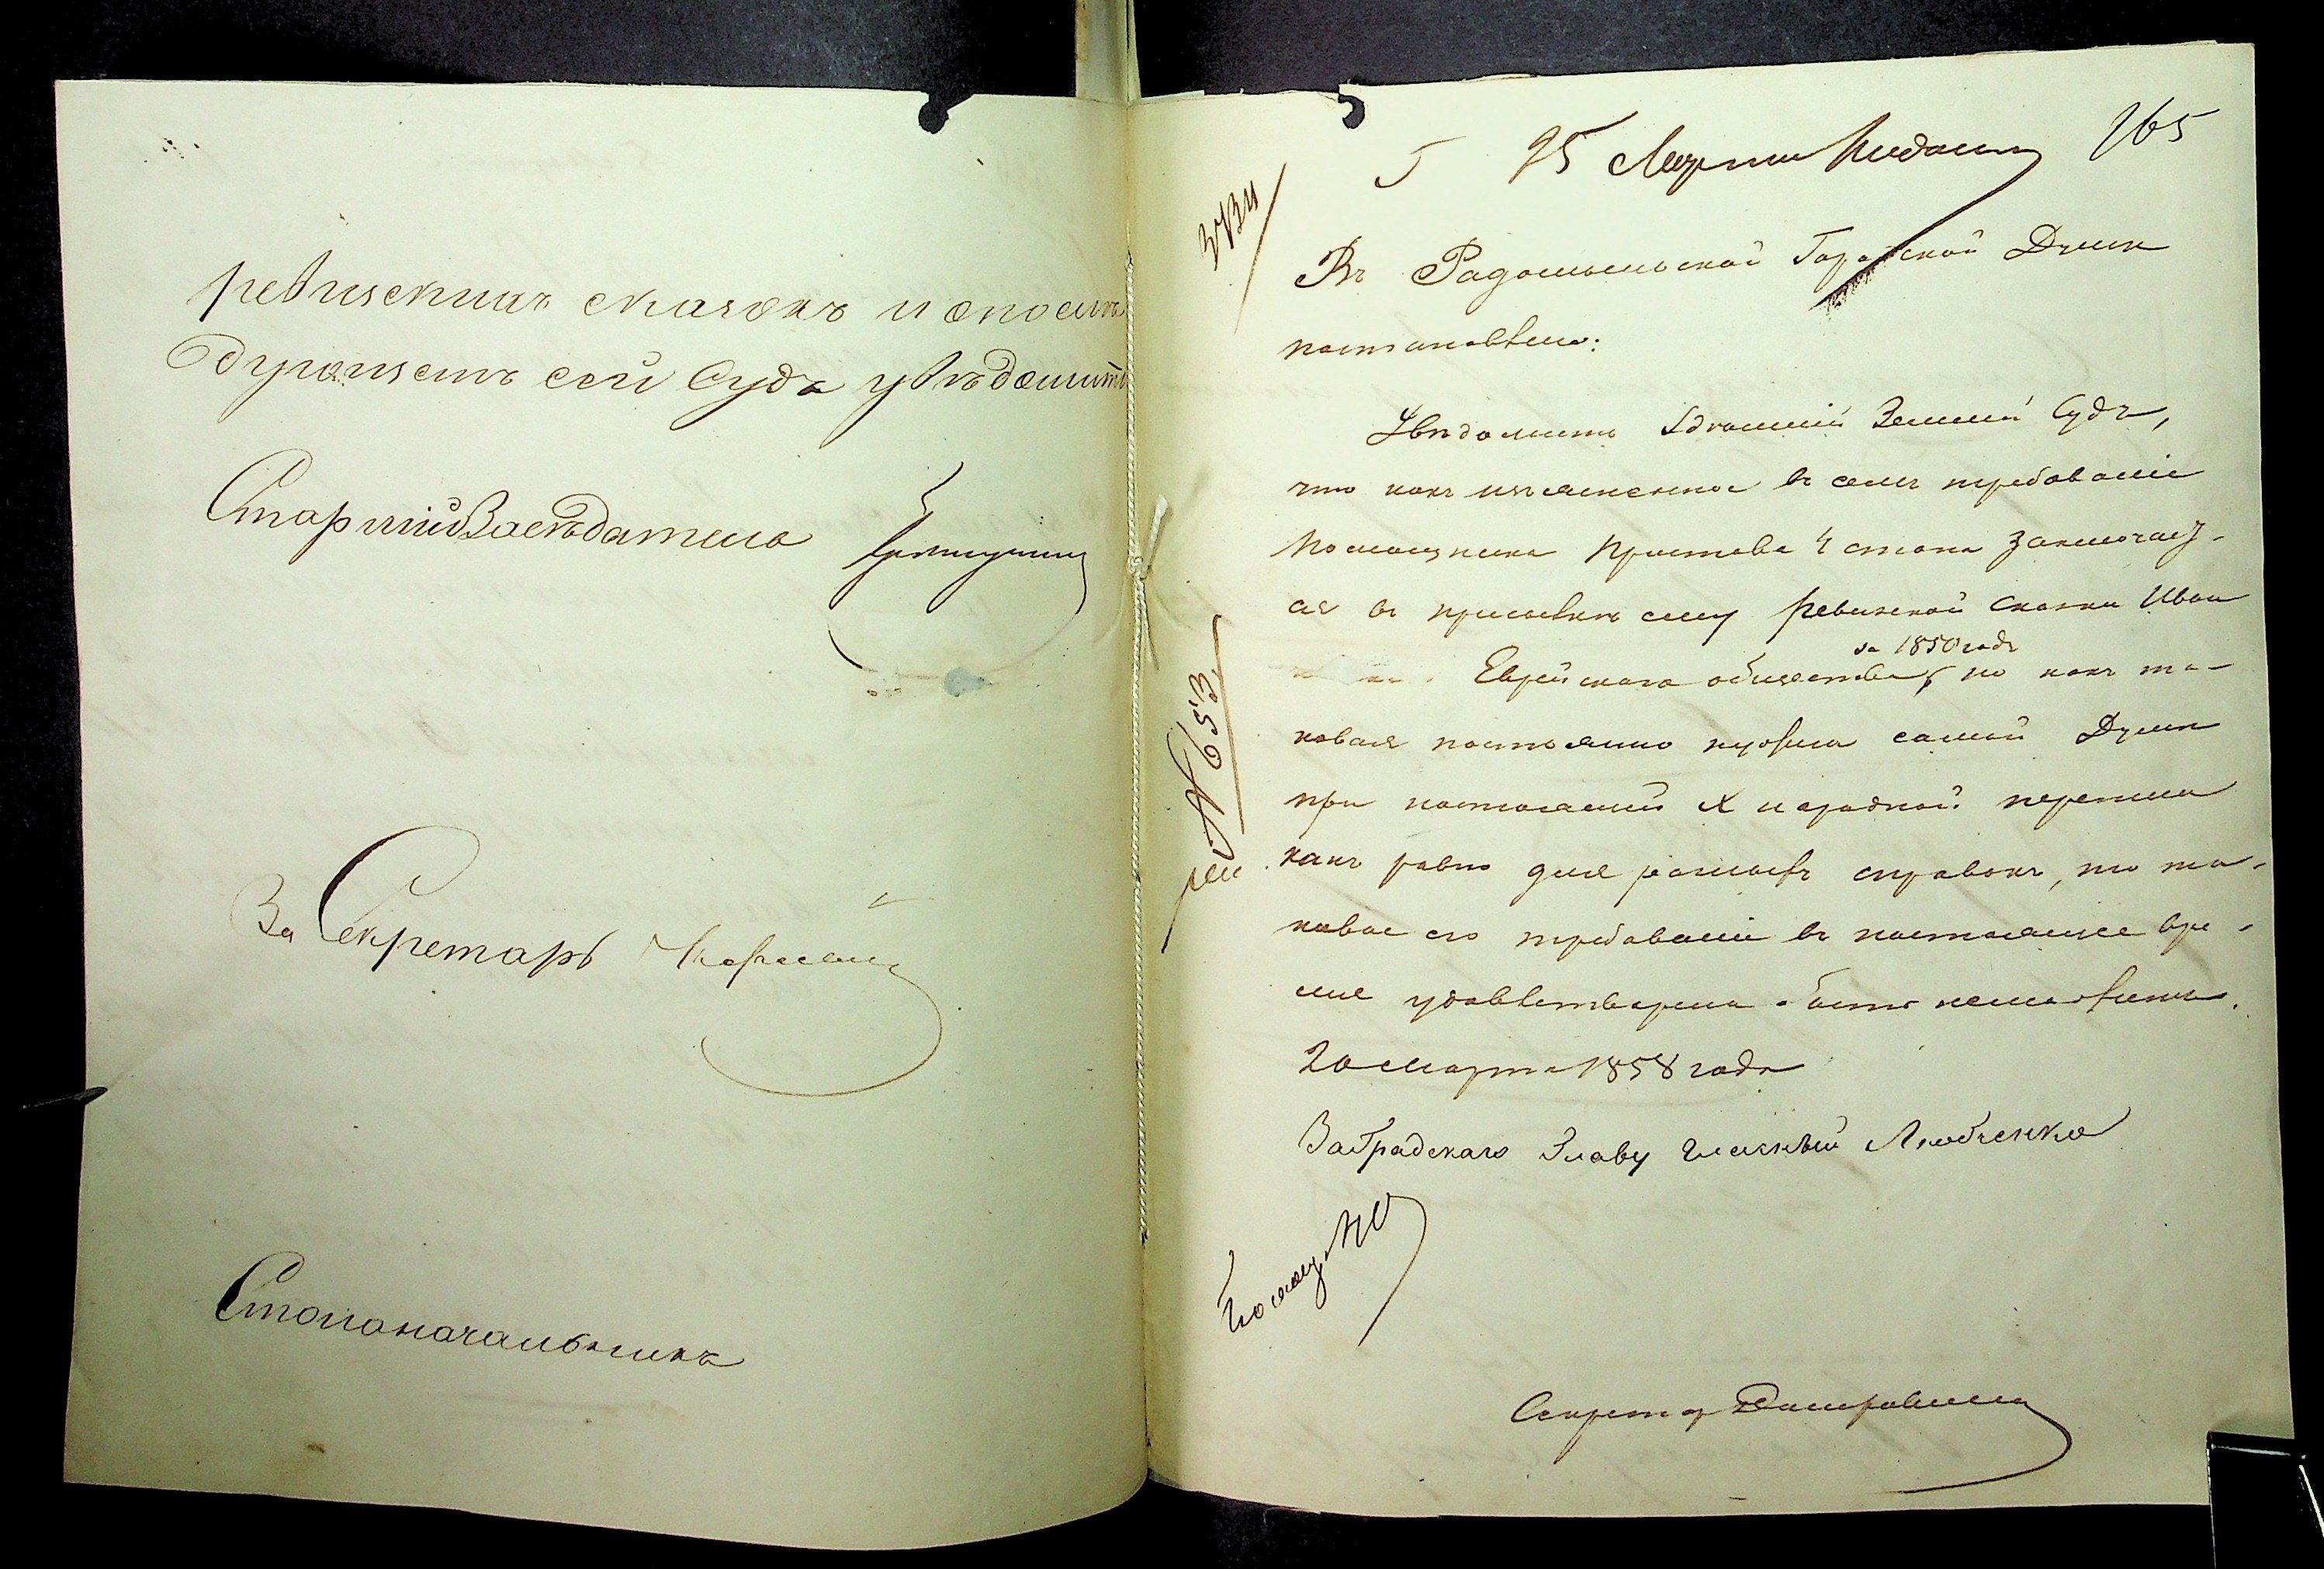 ревизскихъ сказокъ и о послѣ
дующемъ сей Судъ увѣдомить
Старшій Засѣдатель
За Секретарь
Столоначальникъ
25 Марта 165
Въ Радомысльской Городской Думѣ
постановлено:
Увѣдомить здѣшній Земскій Судъ,
что какъ изъясненное въ семъ требованіе
Помощника Пристава 4 стана заключает-
ся въ присылкѣ ему ревизской сказки Иван
за 1850 годъ
Еврейскаго общества, но какъ та-
ковая постоянно нужна самой Думѣ
при настоящей X народной переписи
какъ равно для разныхъ справокъ, то та-
ковое его требованіе въ настоящее вре-
мя удовлетворено быть неможетъ.
20 Марта 1858 года
За Градскаго Главу Гласный Любченко
№ 653
Секретарь